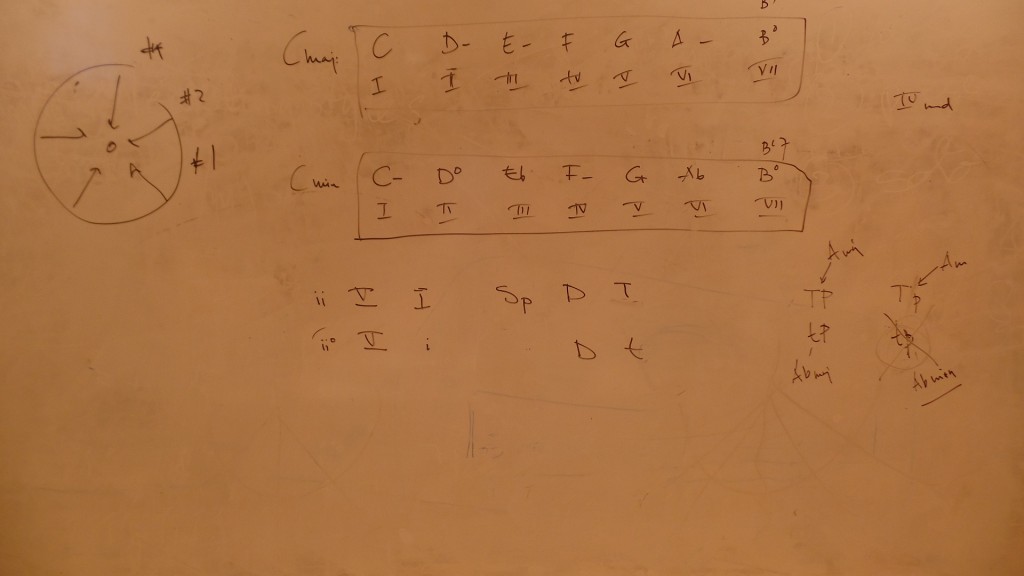 B°
Cmaj C D- E- F G A- B°
I II III IV V VI VII
#2
#1
IV
Cmin C- D° Eb F- G Ab B°
I II III IV V VI VII
Amaj Am
ii V I Sp D T TP Tp
ii° V i D t tP tp
Abmaj Abmin